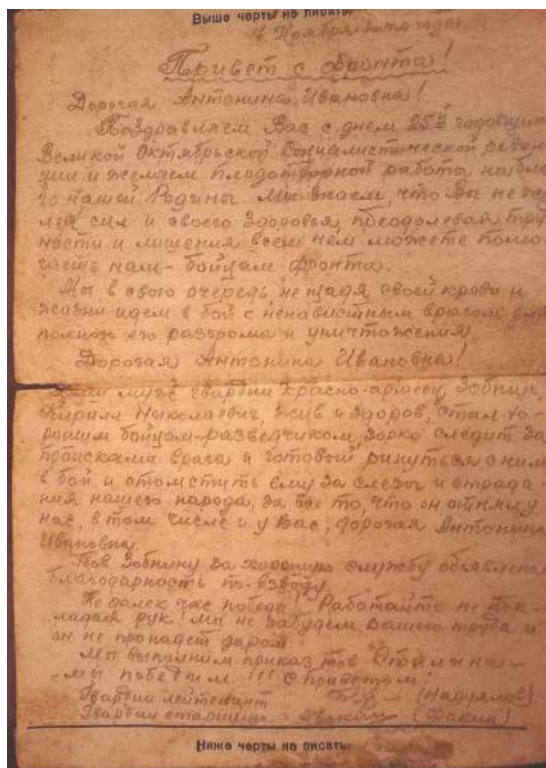 Выше черты не писать.
7 Ноября 1942 года.
Привет с фронта!
Дорогая Антонина Ивановна!
Поздравляем Вас с днем 25й годовщины
Великой Октябрьской Социалистической револю
ции и желаем плодотворной работы на бла
го нашей Родины. Мы знаем, что Вы не жа
лея сил и своего здоровья, преодолевая труд
ности и лишения всем чем можете помо
гаете нам - бойцам фронта.
Мы, в свою очередь, не щадя своей крови и
жизни идем в бой с ненавистным врагом для
полного его разгрома и уничтожения.
Дорогая Антонина Ивановна!
Ваш муж гвардии красно-армеец Зобнин,
Кирилл Николаевич, жив и здоров, стал хо-
рошим бойцом-разведчиком, зорко следит за
происками врага и готовый ринуться с ним
в бой и отомстить ему за слезы и страда-
ния нашего народа, за все то, что он отнял у
нас, в том числе и у Вас, дорогая Антонина
Ивановна.
Тов. Зобнину за хорошую службу объявлена
благодарность по взводу.
Не далек час победы! Работайте не пок-
ладая рук! Мы не забудем вашего труда и
он не пропадет даром.
Мы выполним приказ тов. Сталина -
- мы победим!!! С приветом!
Гвардии лейтенант
Гвардии старшина (Фокин)
Ниже черты не писать.